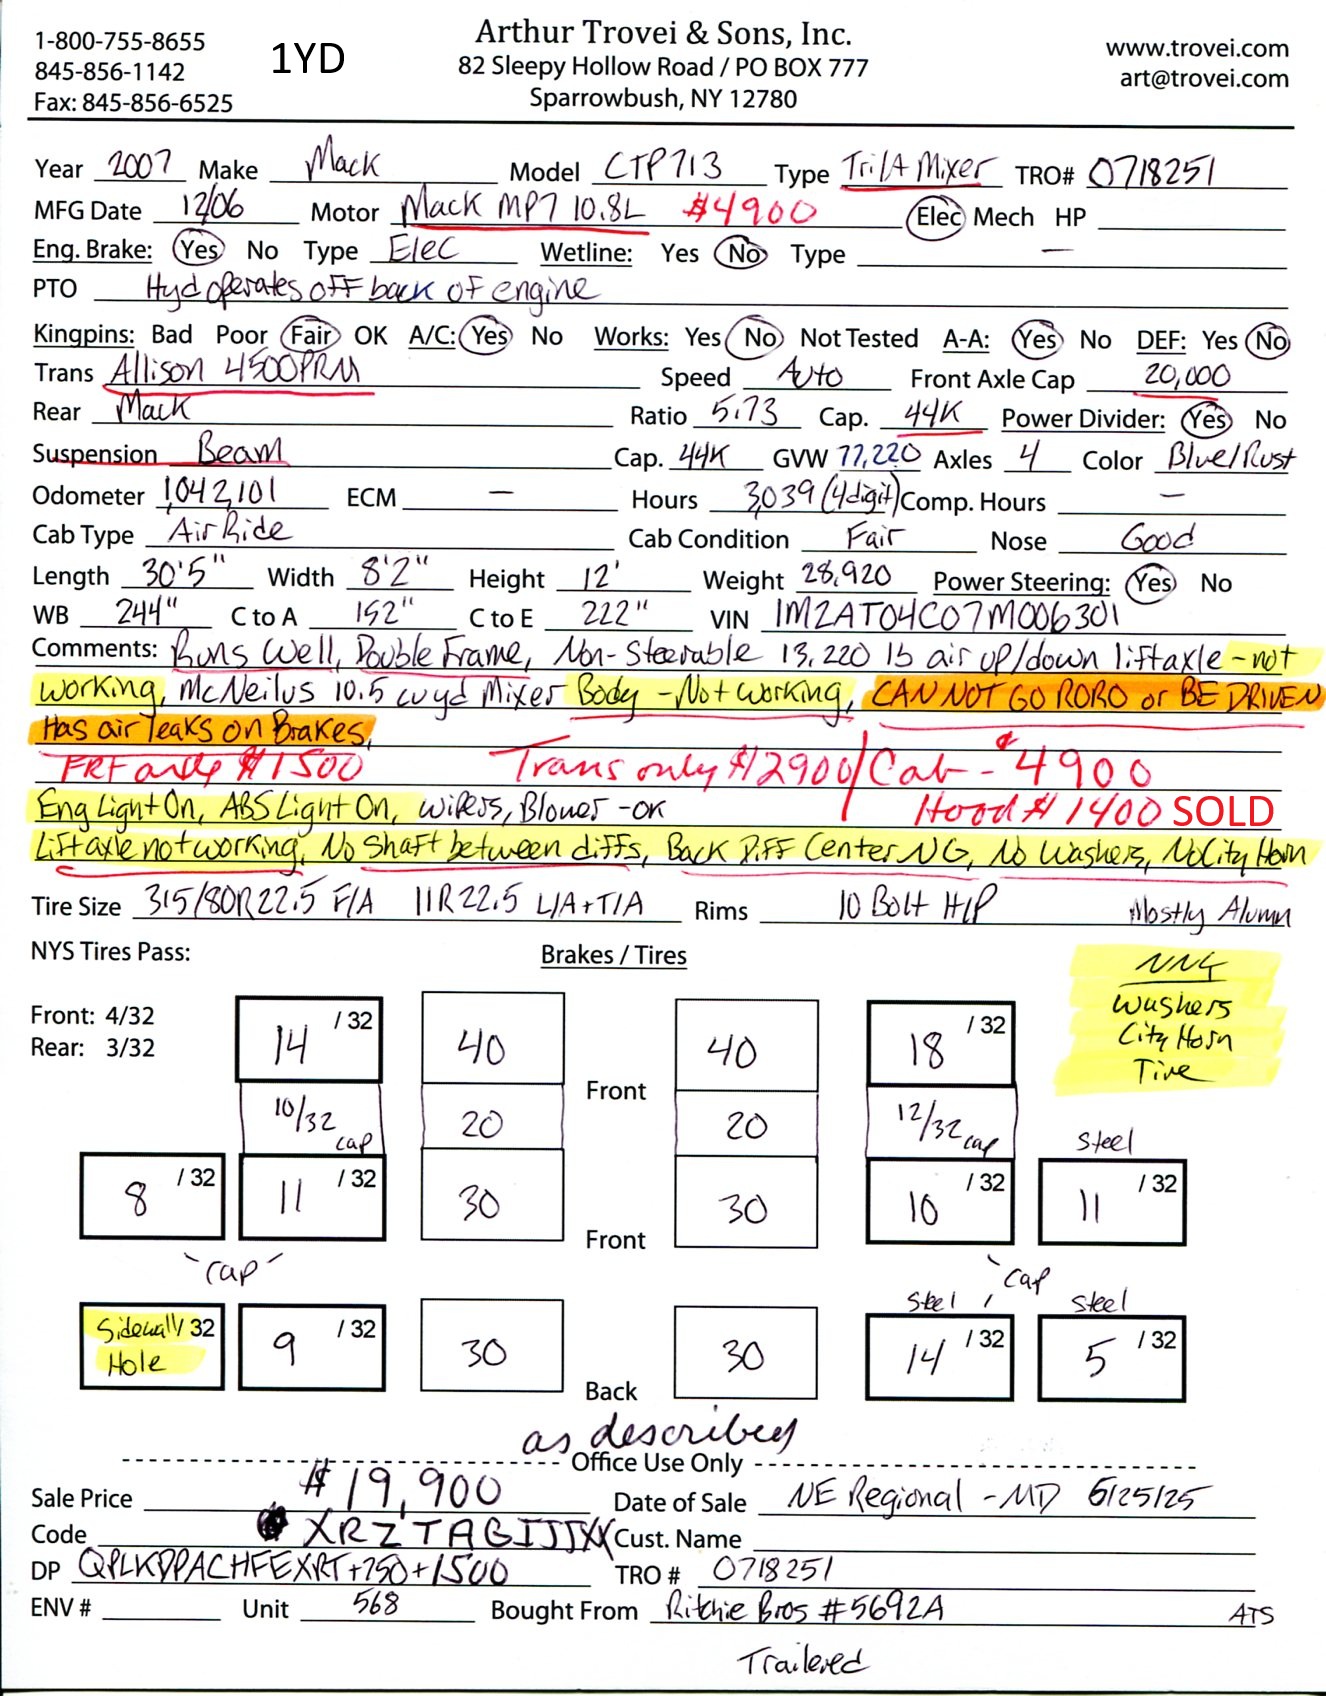 1-800-755-8655
845-856-1142
Fax: 845-856-6525
1YD
Arthur Trovei & Sons, Inc.
82 Sleepy Hollow Road / PO BOX 777
Sparrowbush, NY 12780
www.trovei.com
art@trovei.com
Year 2007 Make Mack Model CTP713 Type Tri/A Mixer TRO# 0718251
MFG Date 12/06 Motor Mack MP7 10.8L $4900 Elec Mech HP
Eng. Brake: Yes No Type Elec Wetline: Yes No Type —
PTO Hyd operates off back of engine
Kingpins: Bad Poor Fair OK A/C: Yes No Works: Yes No Not Tested A-A: Yes No DEF: Yes No
Trans Allison 4500PRM Speed Auto Front Axle Cap 20,000
Rear Mack Ratio 5.73 Cap. 44K Power Divider: Yes No
Suspension Beam Cap. 44K GVW 77,220 Axles 4 Color Blue/Rust
Odometer 1,042,101 ECM — Hours 3,039 (4digit) Comp. Hours —
Cab Type Air Ride Cab Condition Fair Nose Good
Length 30'5" Width 8'2" Height 12' Weight 28,920 Power Steering: Yes No
WB 244" C to A 152" C to E 222" VIN 1M2AT04C07M006301
Comments: Runs Well, Double Frame, Non-Steerable 13,220 lb air up/down liftaxle - not
working, McNeilus 10.5 cuyd Mixer Body - Not working, CAN NOT GO RORO or BE DRIVEN
Has air leaks on Brakes,
FRT axle $1500 Trans only $2900 / Cab - $4900
Eng Light On, ABS Light On, Wipers, Blower - OK Hood $1400 SOLD
Liftaxle not working, No Shaft between diffs, Back Diff Center NG, No Washers, No City Horn
Tire Size 315/80R22.5 F/A 11R22.5 L/A + T/A Rims 10 Bolt H/P Mostly Alumn
NYS Tires Pass: Brakes / Tires
NNG
Washers
City Horn
Tire
Front: 4/32
Rear: 3/32
14 /32 40 Front 40 18 /32
10/32 cap 20 20 12/32 cap
Steel
8 /32 11 /32 30 Front 30 10 /32 11 /32
cap cap
Steel Steel
Sidewall /32 Hole 9 /32 30 Back 30 14 /32 5 /32
as described
Office Use Only
Sale Price $19,900 Date of Sale NE Regional - MD 6/25/25
Code XRZTAGIJJXX Cust. Name
DP QPLKDPACHFEXRT+750+1500 TRO # 0718251
ENV # Unit 568 Bought From Ritchie Bros #5692A ATS
Trailered